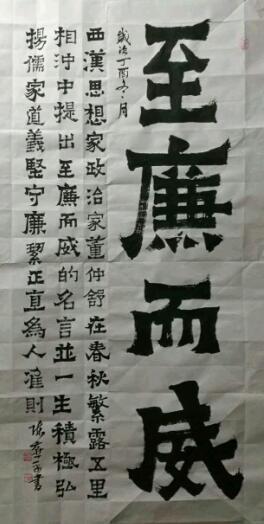 至廉而威
歲次丁酉六月
西漢思想家政治家董仲舒在春秋繁露五里
相沖中提出至廉而威的名言並一生積極弘
揚儒家道義堅守廉絜正直為人准則 書